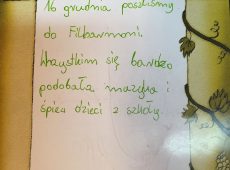 16 grudnia poszliśmy
do Filharmonii.
Wszystkim się bardzo
podobała muzyka i
śpiew dzieci z szkoły.